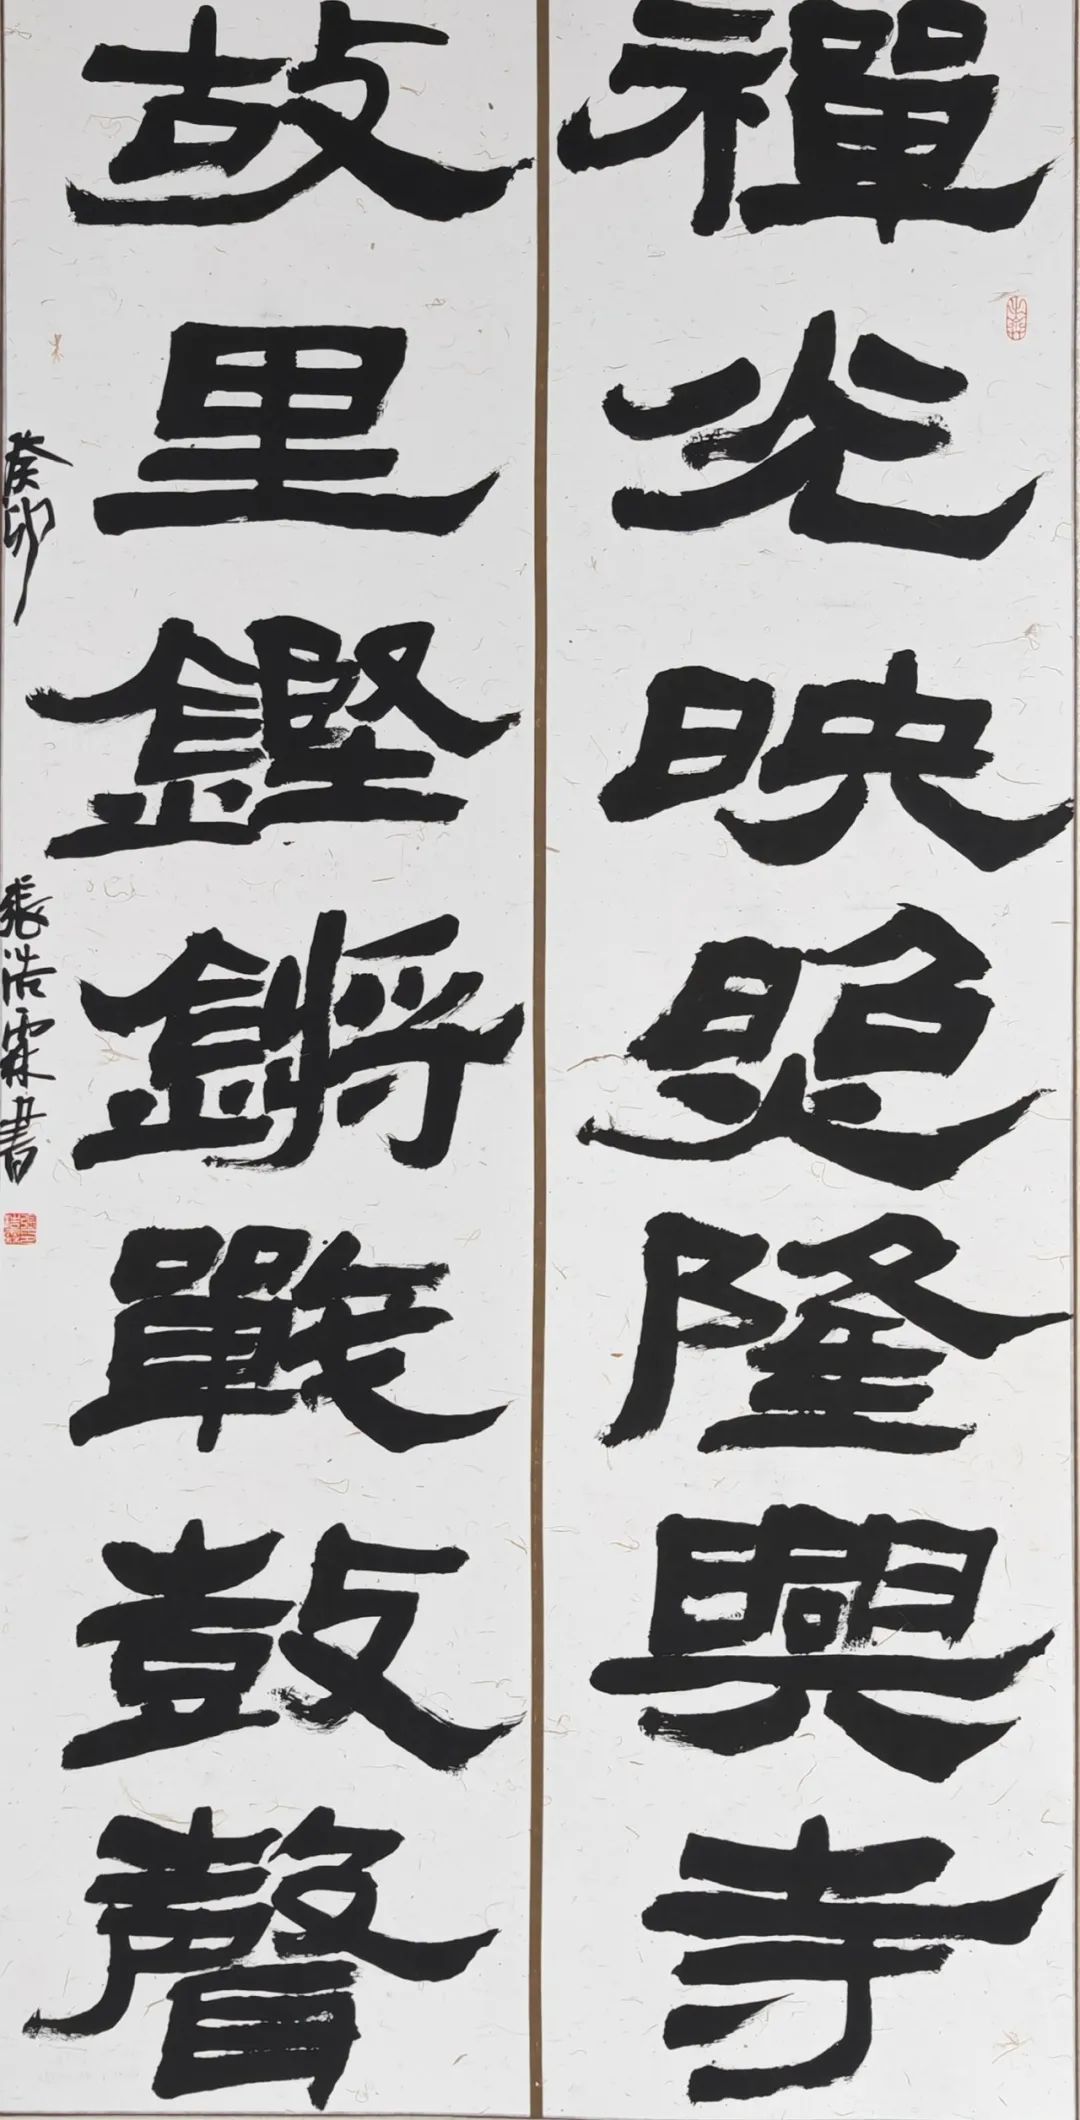 禪光映照隆興寺
故里鏗鏘戰鼓聲
癸卯 張浩霖書